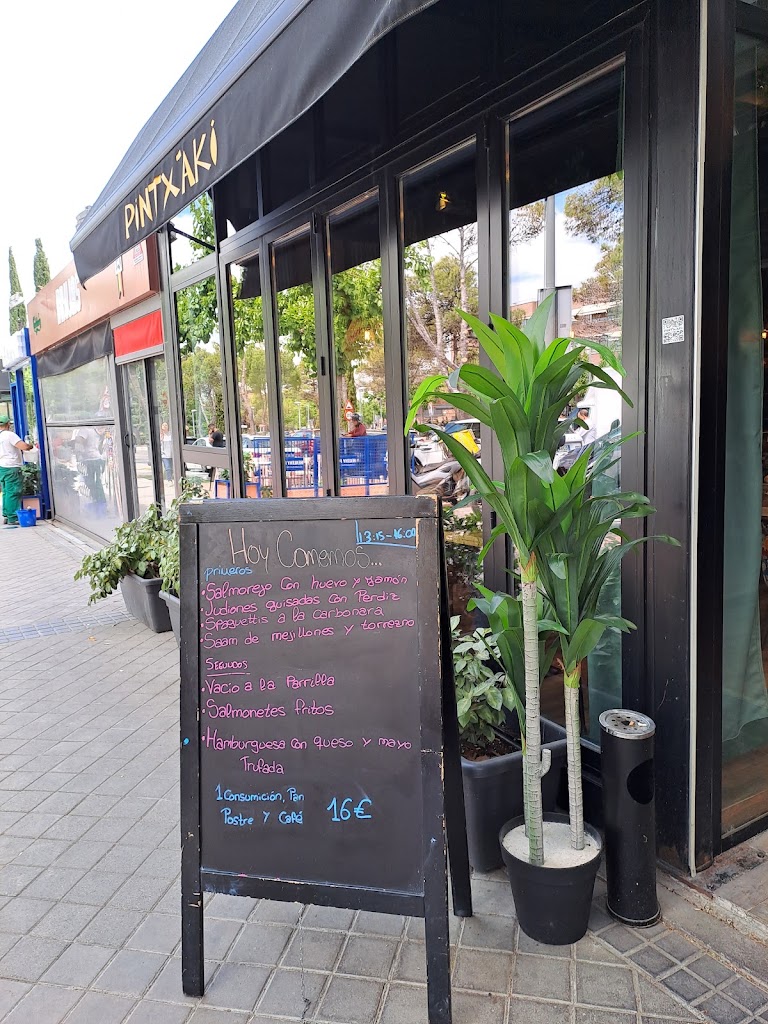 PINTX'AKI
13:15-16:00
Hoy Comemos...
primeros
• Salmorejo con huevo y jamón
• Judiones guisados con Perdiz
• Spaguettis a la carbonara
• Saam de mejillones y torrezno
Segundos
• Vacio a la Parrilla
• Salmonetes fritos
• Hamburguesa con queso y mayo
Trufada
1 Consumición, Pan
Postre y Café 16€